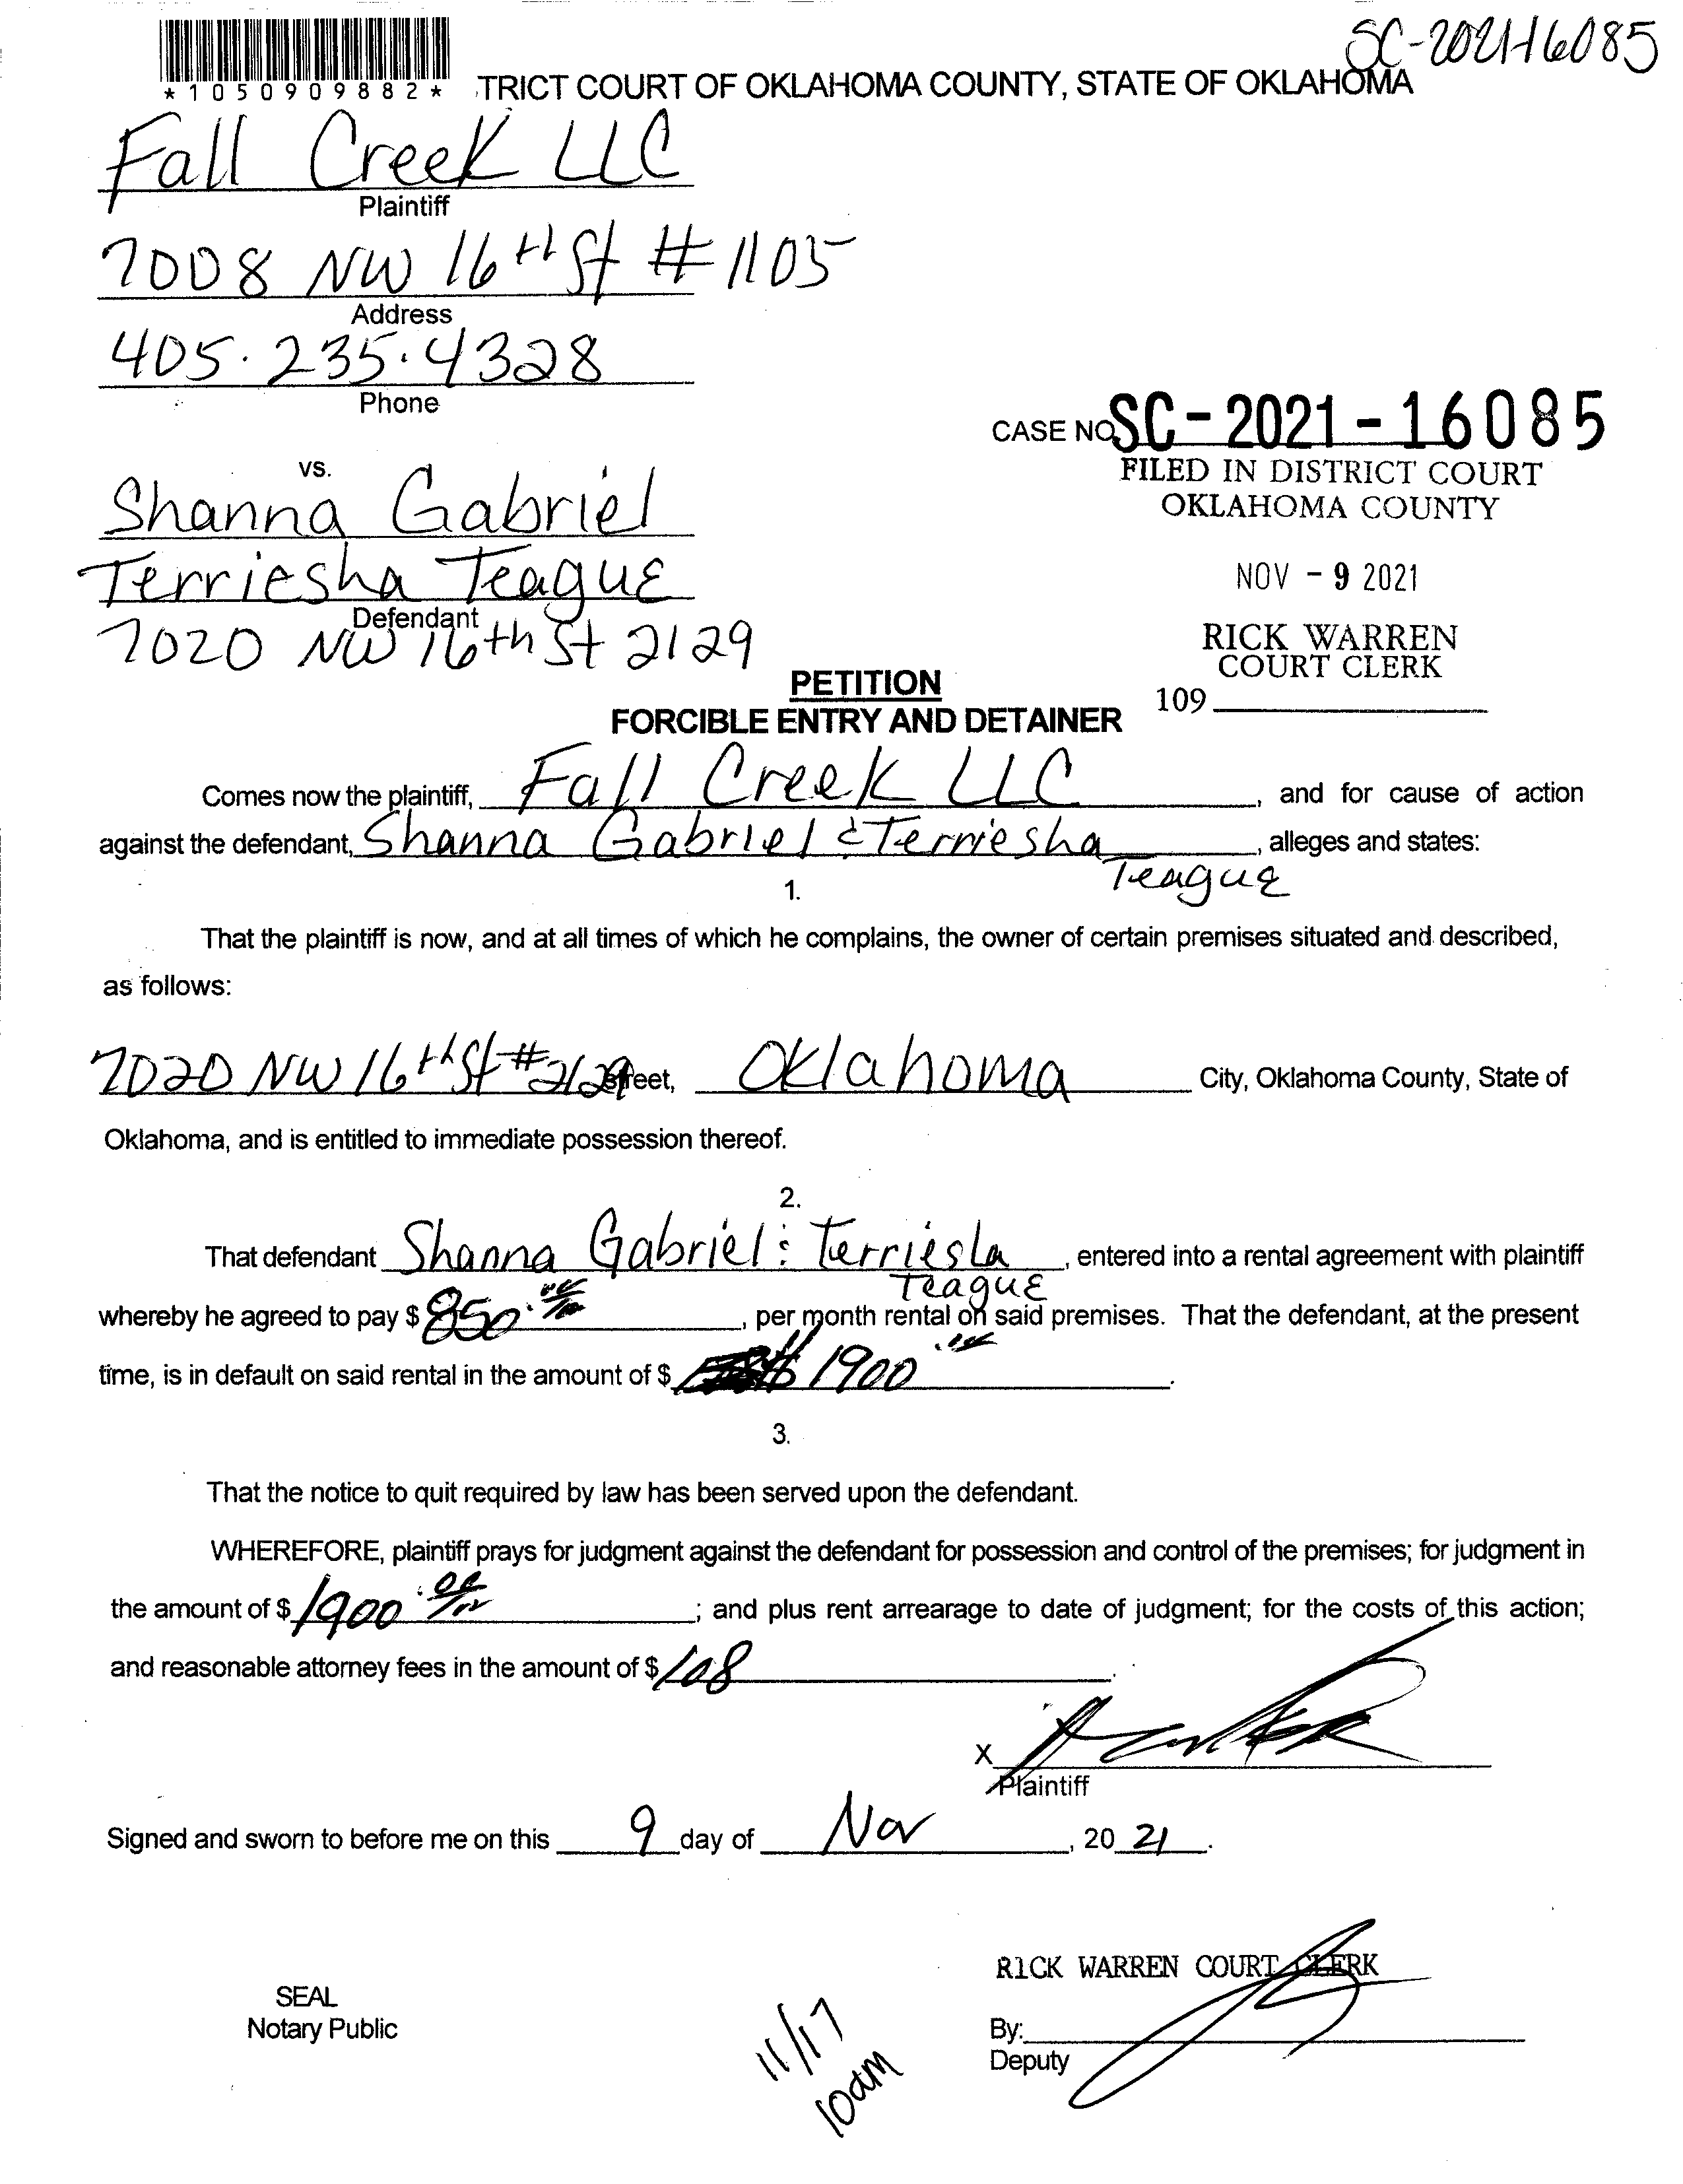 SC-2021-16085
*1050909882* TRICT COURT OF OKLAHOMA COUNTY, STATE OF OKLAHOMA
Fall Creek LLC
Plaintiff
7008 NW 16th St #1105
Address
405.235.4328
Phone
CASE NO SC-2021-16085
FILED IN DISTRICT COURT
OKLAHOMA COUNTY
NOV - 9 2021
RICK WARREN
COURT CLERK
109
vs.
Shanna Gabriel
Terriesha Teague
Defendant
7020 NW 16th St 2129
PETITION
FORCIBLE ENTRY AND DETAINER
Comes now the plaintiff, Fall Creek LLC, and for cause of action
against the defendant, Shanna Gabriel & Terriesha, alleges and states:
Teague
1.
That the plaintiff is now, and at all times of which he complains, the owner of certain premises situated and described,
as follows:
7020 NW 16th St #2129 street, Oklahoma City, Oklahoma County, State of
Oklahoma, and is entitled to immediate possession thereof.
2.
That defendant Shanna Gabriel & Terriesha, entered into a rental agreement with plaintiff
Teague
whereby he agreed to pay $ 850.00, per month rental on said premises. That the defendant, at the present
time, is in default on said rental in the amount of $ $1900.
3.
That the notice to quit required by law has been served upon the defendant.
WHEREFORE, plaintiff prays for judgment against the defendant for possession and control of the premises; for judgment in
the amount of $ 1900.00; and plus rent arrearage to date of judgment; for the costs of this action;
and reasonable attorney fees in the amount of $ 108.
X
Plaintiff
Signed and sworn to before me on this 9 day of Nov, 20 21.
RICK WARREN COURT CLERK
SEAL
Notary Public
By:
Deputy
11/17
10am